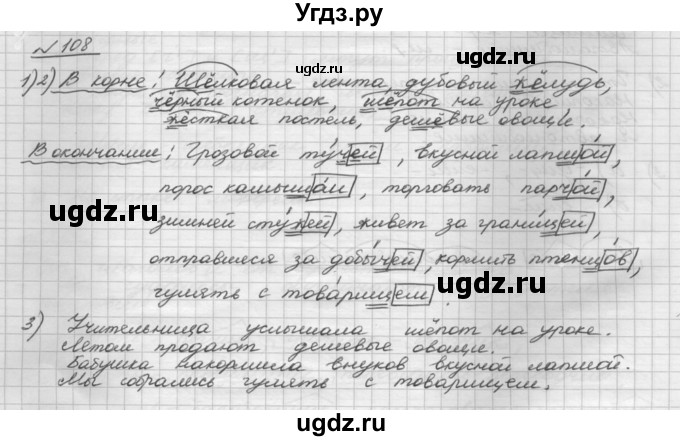 Угдз.ру
№ 108
1)2) В корне: Шёлковая лента, дубовый жёлудь,
чёрный котенок, шёпот на уроке
жёсткая постель, дешёвые овощи.
В окончание: Грозовой ту́чей, вкусной лапшо́й,
порос камышо́м, торговать парчо́й,
зимней сту́жей, живет за грани́цей,
отправшеся за добы́чей, кормить птенцо́в,
гулять с това́рищем.
3) Учительница услышала шёпот на уроке.
Летом продают дешевые овощи.
Бабушка накормила внуков вкусной лапшой.
Мы собрались гулять с товарищем.
ugdz.ru
ugdz.ru
ugdz.ru
ugdz.ru
ugdz.ru